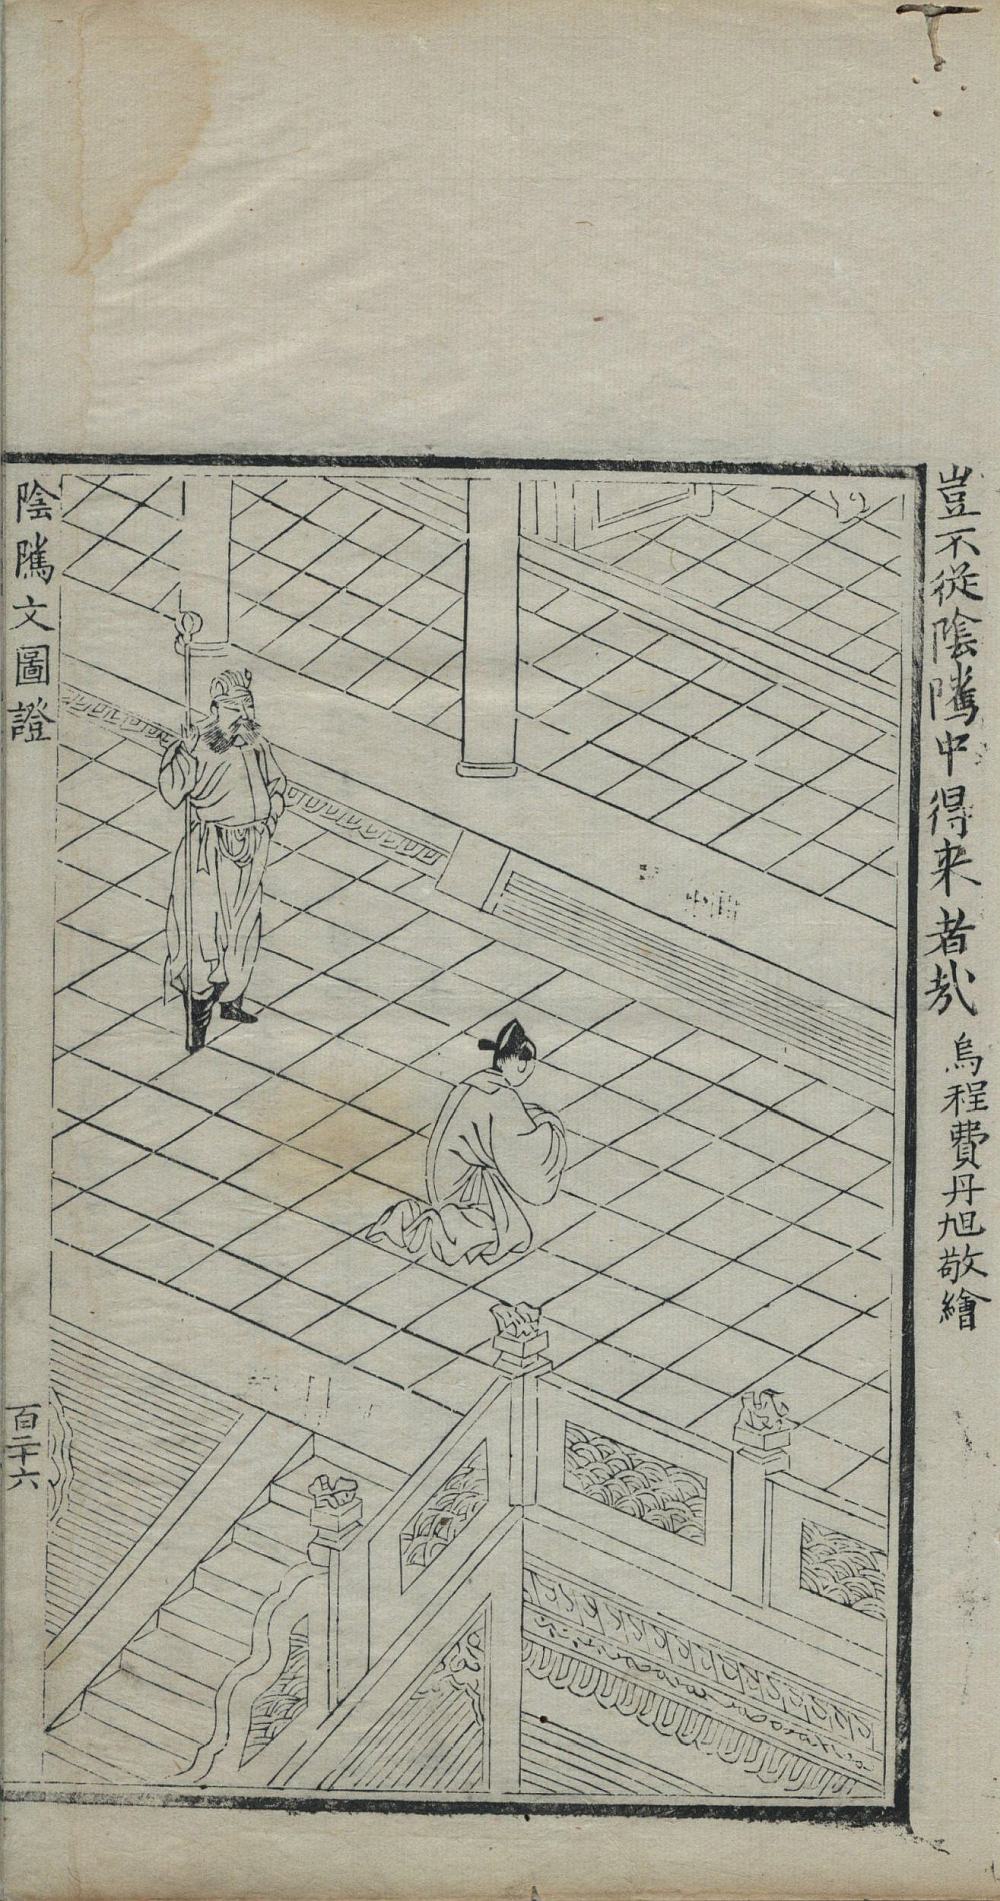 豈不從陰騭中得来者哉 烏程費丹旭敬繪
陰騭文圖證
百二十六